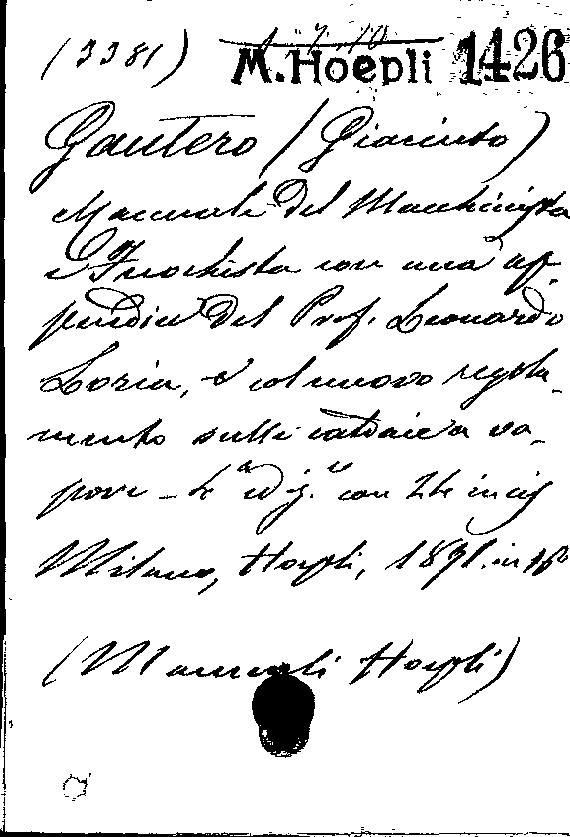 (3381) 1.7.10
M. Hoepli 1426
Gautero (Giacinto)
Manuale del Macchinista
e Fuochista con una ap-
pendice del Prof. Leonardo
Loria, e col nuovo regola-
mento sulle caldaie a va-
pore - 4ª ediz. con 24 incis
Milano, Hoepli, 1891. in 16º
(Manuali Hoepli)